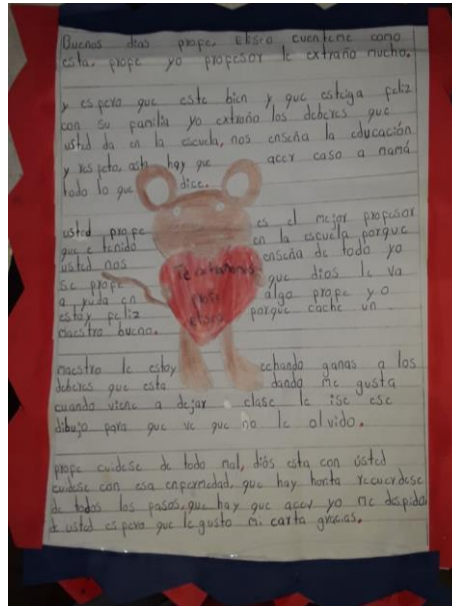 Buenos dias profe, Eliseo cuenteme como
esta, profe yo profesor le extraño mucho.
y espero que este bien y que esteiga feliz
con su familia yo extraño los deberes que
usted da en la escuela, nos enseña la educación
y respeto, asta hay que acer caso a mamá
todo lo que dice.
usted profe es el mejor profesor
que e tenido en la escuela porque
usted nos enseña de todo yo
se profe que dios le va
a yuda en algo profe yo
estoy feliz porque caché un
maestro bueno.
Te extrañamos
profe
eliseo
maestro le estoy echando ganas a los
deberes que esta dando me gusta
cuando viene a dejar clase le ise ese
dibujo para que ve que no le olvido.
profe cuidese de todo mal, diós esta con usted
cuidese con esa enfermedad, que hay horita recuerdese
de todos los pasos, que hay que acer yo me despido
de usted espero que le gusto mi carta gracias.